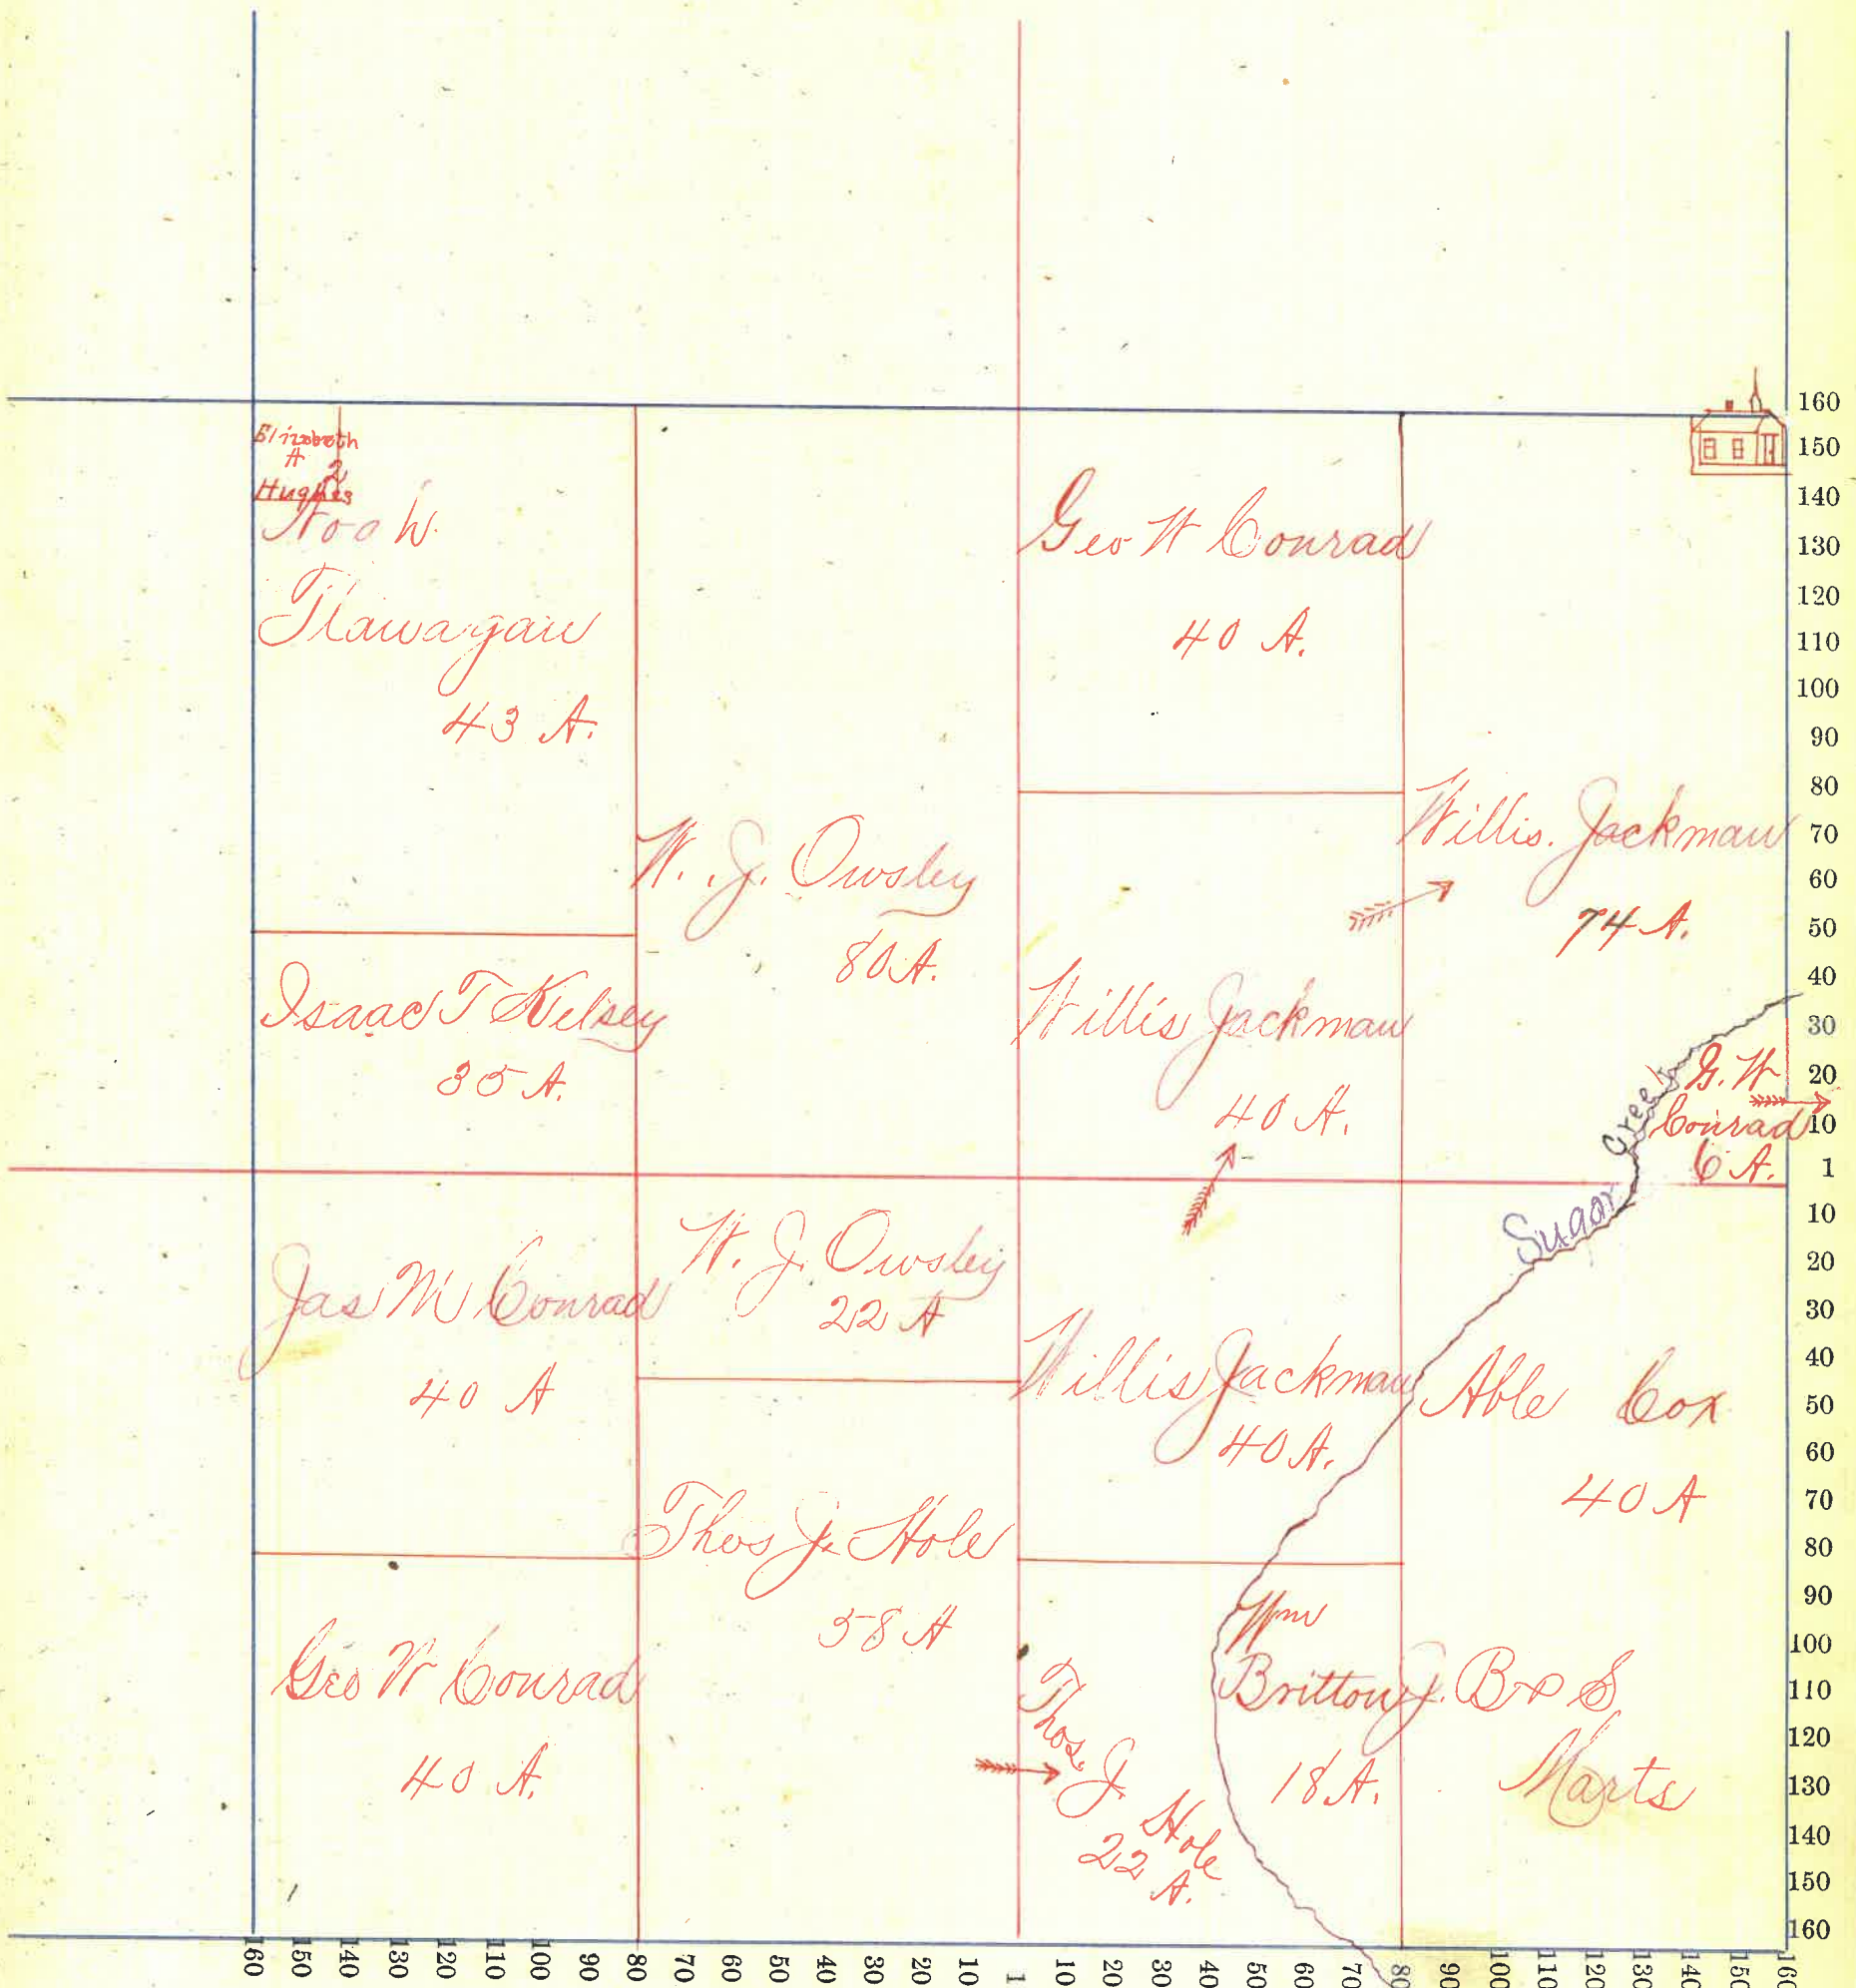 Elizabeth
A 2
Hughes
Noah
43 A.
Isaac T Kelsey
35 A.
W. J. Owsley
80 A.
Geo W Conrad
40 A.
Willis Jackman
40 A.
Willis. Jackman
74 A.
G. W
Conrad
6 A.
Sugar Creek
Jas M Conrad
40 A
W. J. Owsley
22 A
Willis Jackman
40 A.
Able Cox
40 A
Geo W Conrad
40 A.
Thos J. Hole
58 A
Thos. J.
Hole
22
A.
Wm
Britton
18 A.
J. B & S
Marts
160
150
140
130
120
110
100
90
80
70
60
50
40
30
20
10
1
10
20
30
40
50
60
70
80
90
100
110
120
130
140
150
160
160 150 140 130 120 110 100 90 80 70 60 50 40 30 20 10 1 10 20 30 40 50 60 70 80 90 100 110 120 130 140 150 160